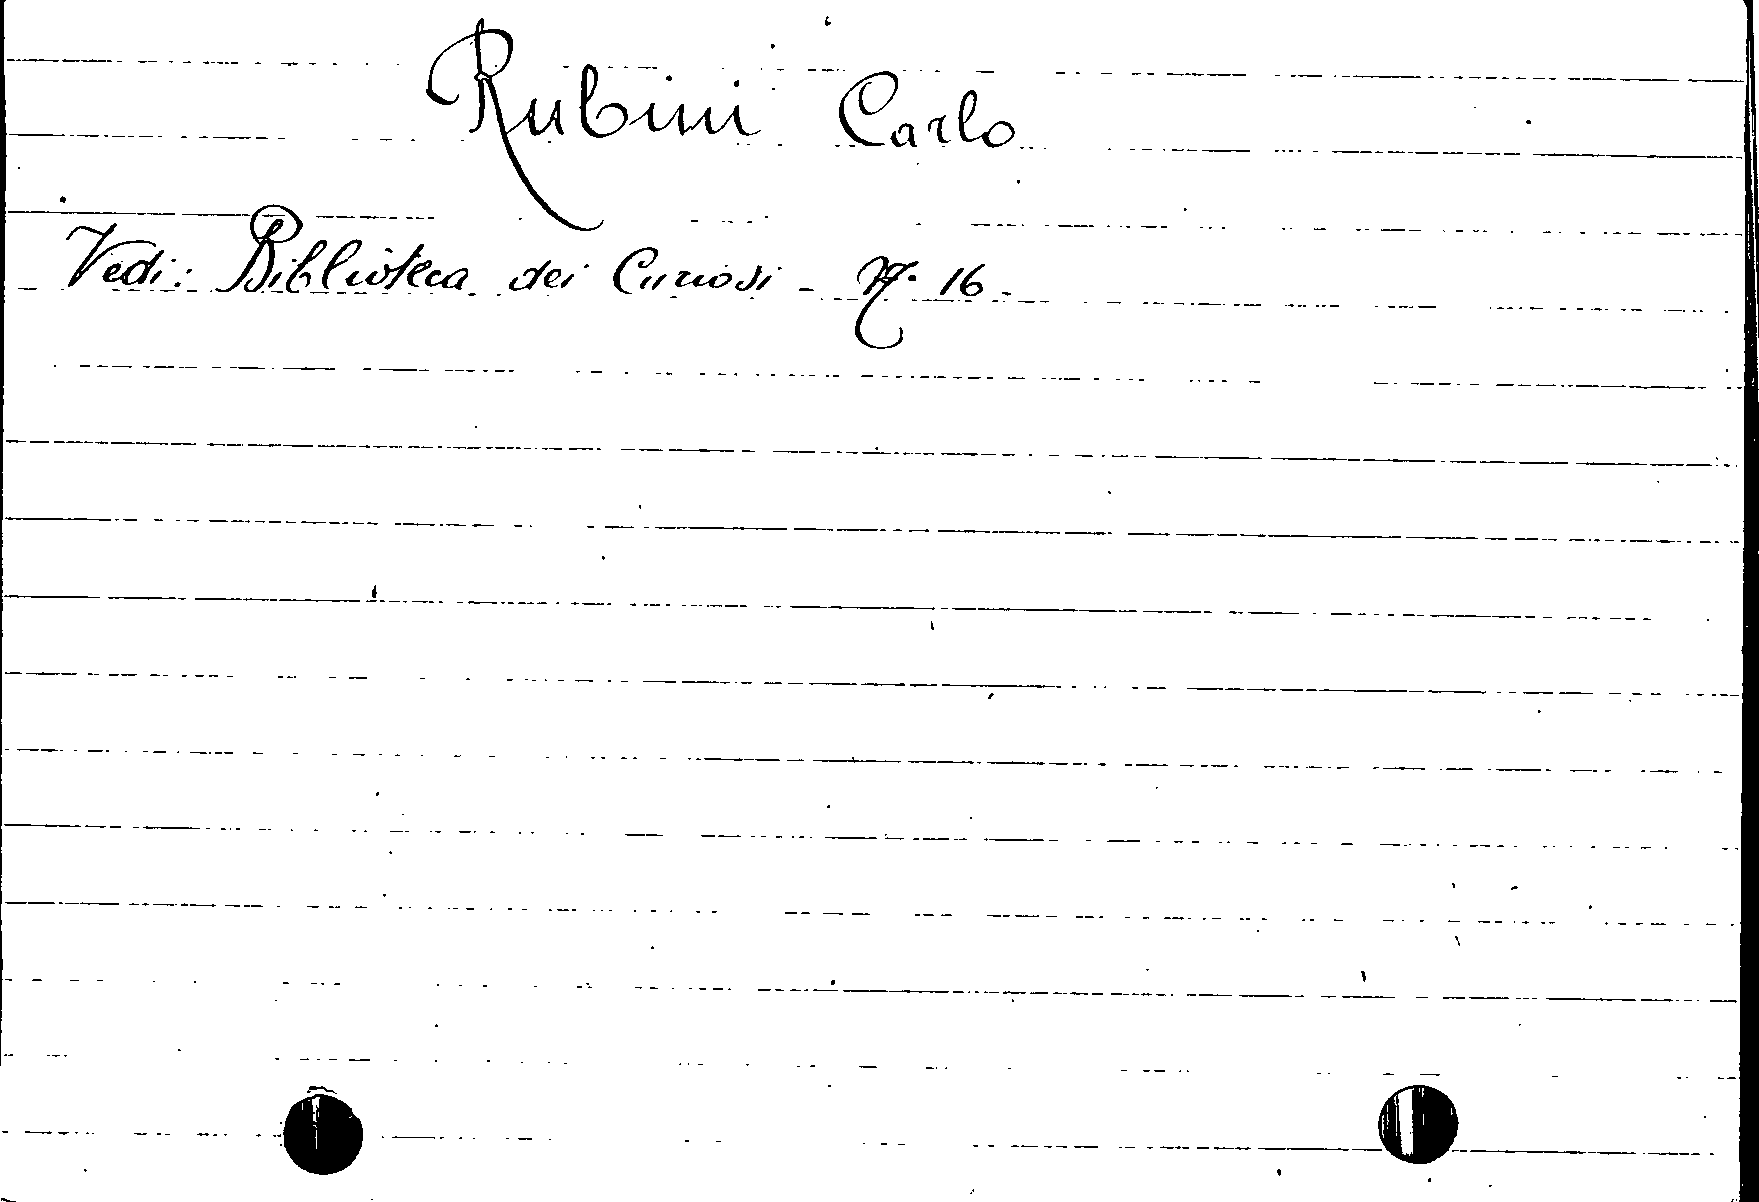 Rubini Carlo
Vedi: Biblioteca dei Curiosi - N. 16.